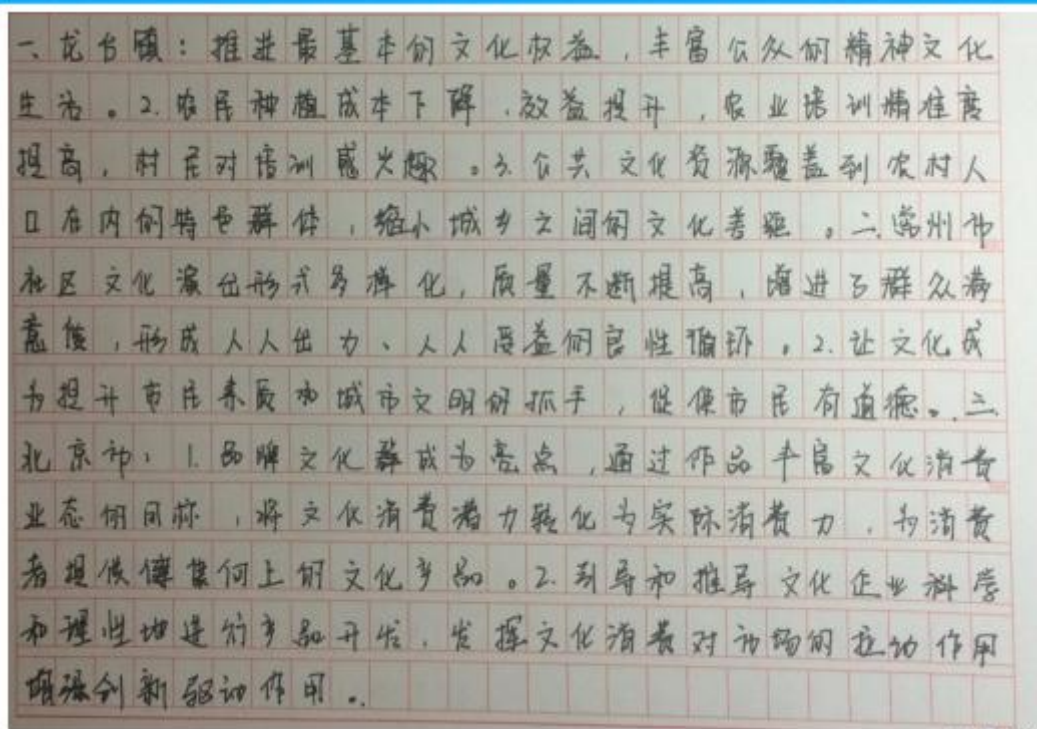 一、龙台镇：推进最基本的文化权益，丰富公众的精神文化
生活。2.农民种植成本下降，效益提升，农业培训精准度
提高，村民对培训感兴趣。3.公共文化资源覆盖到农村人
口在内的特色群体，缩小城乡之间的文化差距。二.常州市
社区文化演出形式多样化，质量不断提高，增进了群众满
意度，形成人人出力、人人受益的良性循环。2.让文化成
为提升市民素质和城市文明的抓手，促使市民有道德。三
北京市：1.品牌文化群成为亮点，通过作品丰富文化消费
业态的同标，将文化消费潜力转化为实际消费力，为消费
者提供俱上的文化产品。2.引导和推导文化企业科学
和理性地进行产品开发，发挥文化消费对市场的拉动作用
增强创新驱动作用。